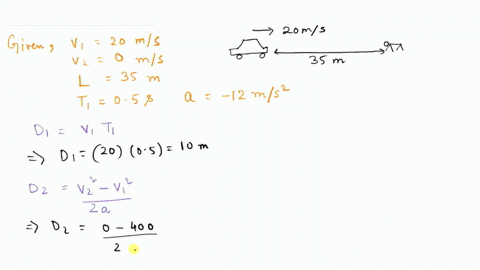 Given, V₁ = 20 m/s
V₂ = 0 m/s
L = 35 m
T₁ = 0.5 s a = -12 m/s²
20 m/s
35 m
D₁ = V₁ T₁
⇒ D₁ = (20) (0.5) = 10 m
D₂ = V₂² - V₁² / 2a
⇒ D₂ = 0 - 400 / 2 .